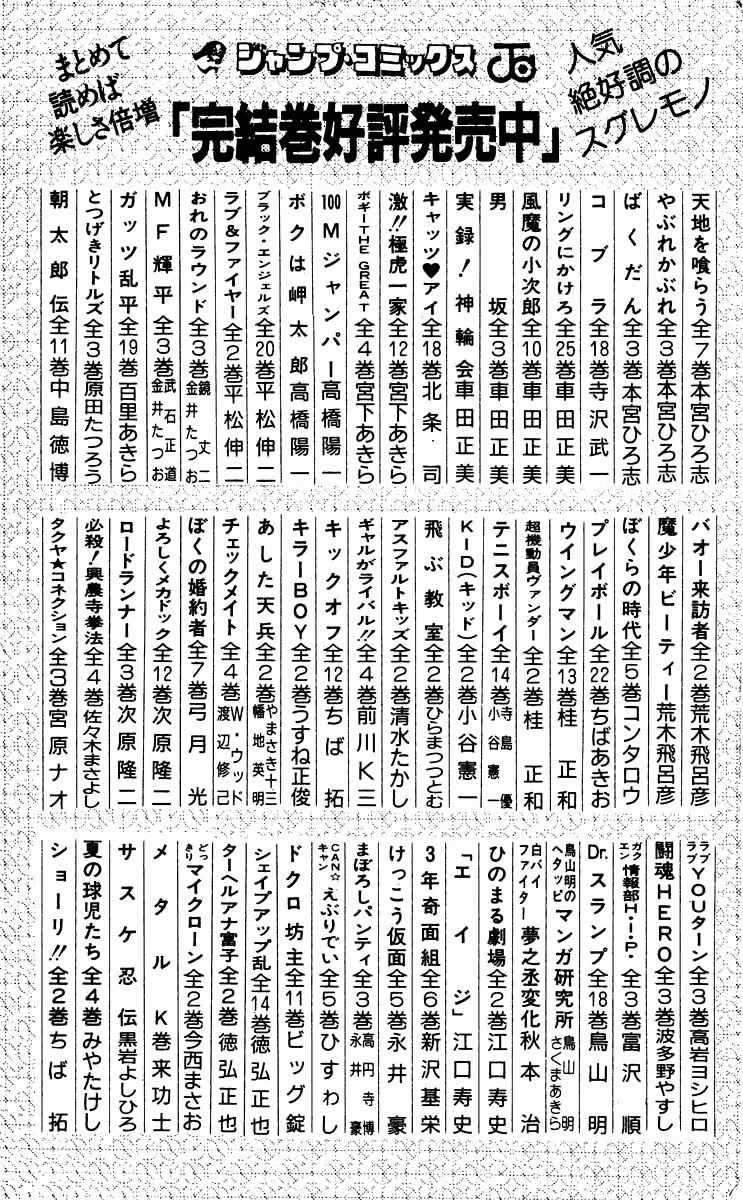 人気
絶好調の
スグレモノ
ジャンプ・コミックス
まとめて
読めば
楽しさ倍増
「完結巻好評発売中」
天地を喰らう全7巻本宮ひろ志
やぶれかぶれ全3巻本宮ひろ志
ばくだん全3巻本宮ひろ志
コブラ全18巻寺沢武一
リングにかけろ全25巻車田正美
風魔の小次郎全10巻車田正美
男坂全3巻車田正美
実録!神輪会車田正美
キャッツ♥アイ全18巻北条司
激!!極虎一家全12巻宮下あきら
ボギーTHE GREAT全4巻宮下あきら
100Mジャンパー高橋陽一
ボクは岬太郎高橋陽一
ブラック・エンジェルズ全20巻平松伸二
ラブ&ファイヤー全2巻平松伸二
おれのラウンド全3巻鏡丈二 金井たつお
MF輝平全3巻武石正道 金井たつお
ガッツ乱平全19巻百里あきら
とつげきリトルズ全3巻原田たつろう
朝太郎伝全11巻中島徳博
バオー来訪者全2巻荒木飛呂彦
魔少年ビーティー荒木飛呂彦
ぼくらの時代全5巻コンタロウ
プレイボール全22巻ちばあきお
ウイングマン全13巻桂正和
超機動員ヴァンダー全2巻桂正和
テニスボーイ全14巻寺島優 小谷憲一
KID(キッド)全2巻小谷憲一
飛ぶ教室全2巻ひらまつつとむ
アスファルトキッズ全2巻清水たかし
ギャルがライバル!!全4巻前川K三
キックオフ全12巻ちば拓
キラーBOY全2巻うすね正俊
あした天兵全2巻やまさき十三 幡地英明
チェックメイト全4巻W・ウッド 渡辺修己
ぼくの婚約者全7巻弓月光
よろしくメカドック全12巻次原隆二
ロードランナー全3巻次原隆二
必殺!興農寺拳法全4巻佐々木まさよし
タクヤ★コネクション全3巻宮原ナオ
ラブラブYOUターン全3巻高岩ヨシヒロ
闘魂HERO全3巻波多野やすし
ガクエン情報部H・I・P・全3巻富沢順
Dr.スランプ全18巻鳥山明
鳥山明のヘタッピマンガ研究所鳥山明 さくまあきら
白バイファイター夢之丞変化秋本治
ひのまる劇場全2巻江口寿史
「エイジ」江口寿史
3年奇面組全6巻新沢基栄
けっこう仮面全5巻永井豪
まぼろしパンティ全3巻高円寺博 永井豪
CAN☆キャンえぶりでい全5巻ひすわし
ドクロ坊主全11巻ビッグ錠
シェイプアップ乱全14巻徳弘正也
ターヘルアナ富子全2巻徳弘正也
どっきりマイクローン全2巻今西まさお
メタルK巻来功士
サスケ忍伝黒岩よしひろ
夏の球児たち全4巻みやたけし
ショーリ!!全2巻ちば拓